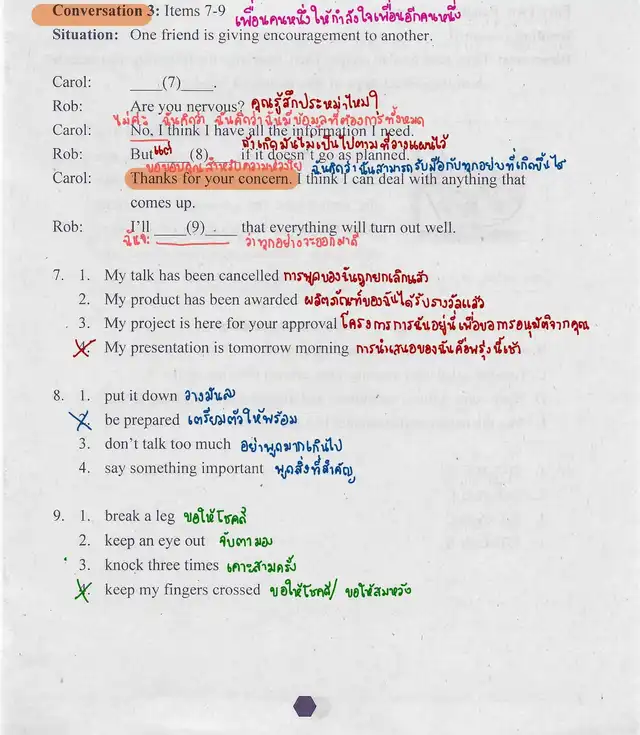 Conversation 3: Items 7-9 เพื่อนคนหนึ่งให้กำลังใจเพื่อนอีกคนหนึ่ง
Situation: One friend is giving encouragement to another.
Carol: ____(7)____.
Rob: Are you nervous? คุณรู้สึกประหม่าไหม?
ไม่ค่ะ ฉันคิดว่า ฉันคิดว่าฉันมีข้อมูลที่ต้องการทั้งหมด
Carol: No, I think I have all the information I need.
แต่ ถ้าเกิดมันไม่เป็นไปตามที่วางแผนไว้
Rob: But ____(8)____ if it doesn't go as planned.
ขอขอบคุณสำหรับความห่วงใย ฉันคิดว่าฉันสามารถรับมือกับทุกอย่างที่เกิดขึ้นได้
Carol: Thanks for your concern. I think I can deal with anything that
comes up.
Rob: I'll ____(9)____ that everything will turn out well.
ฉันจะ ว่าทุกอย่างจะออกมาดี
7. 1. My talk has been cancelled การพูดของฉันถูกยกเลิกแล้ว
2. My product has been awarded ผลิตภัณฑ์ของฉันได้รับรางวัลแล้ว
3. My project is here for your approval โครงการการฉันอยู่นี่เพื่อขอการอนุมัติจากคุณ
4. My presentation is tomorrow morning การนำเสนอของฉันคือพรุ่งนี้เช้า
8. 1. put it down วางมันลง
2. be prepared เตรียมตัวให้พร้อม
3. don't talk too much อย่าพูดมากเกินไป
4. say something important พูดสิ่งที่สำคัญ
9. 1. break a leg ขอให้โชคดี
2. keep an eye out จับตามอง
3. knock three times เคาะสามครั้ง
4. keep my fingers crossed ขอให้โชคดี/ ขอให้สมหวัง